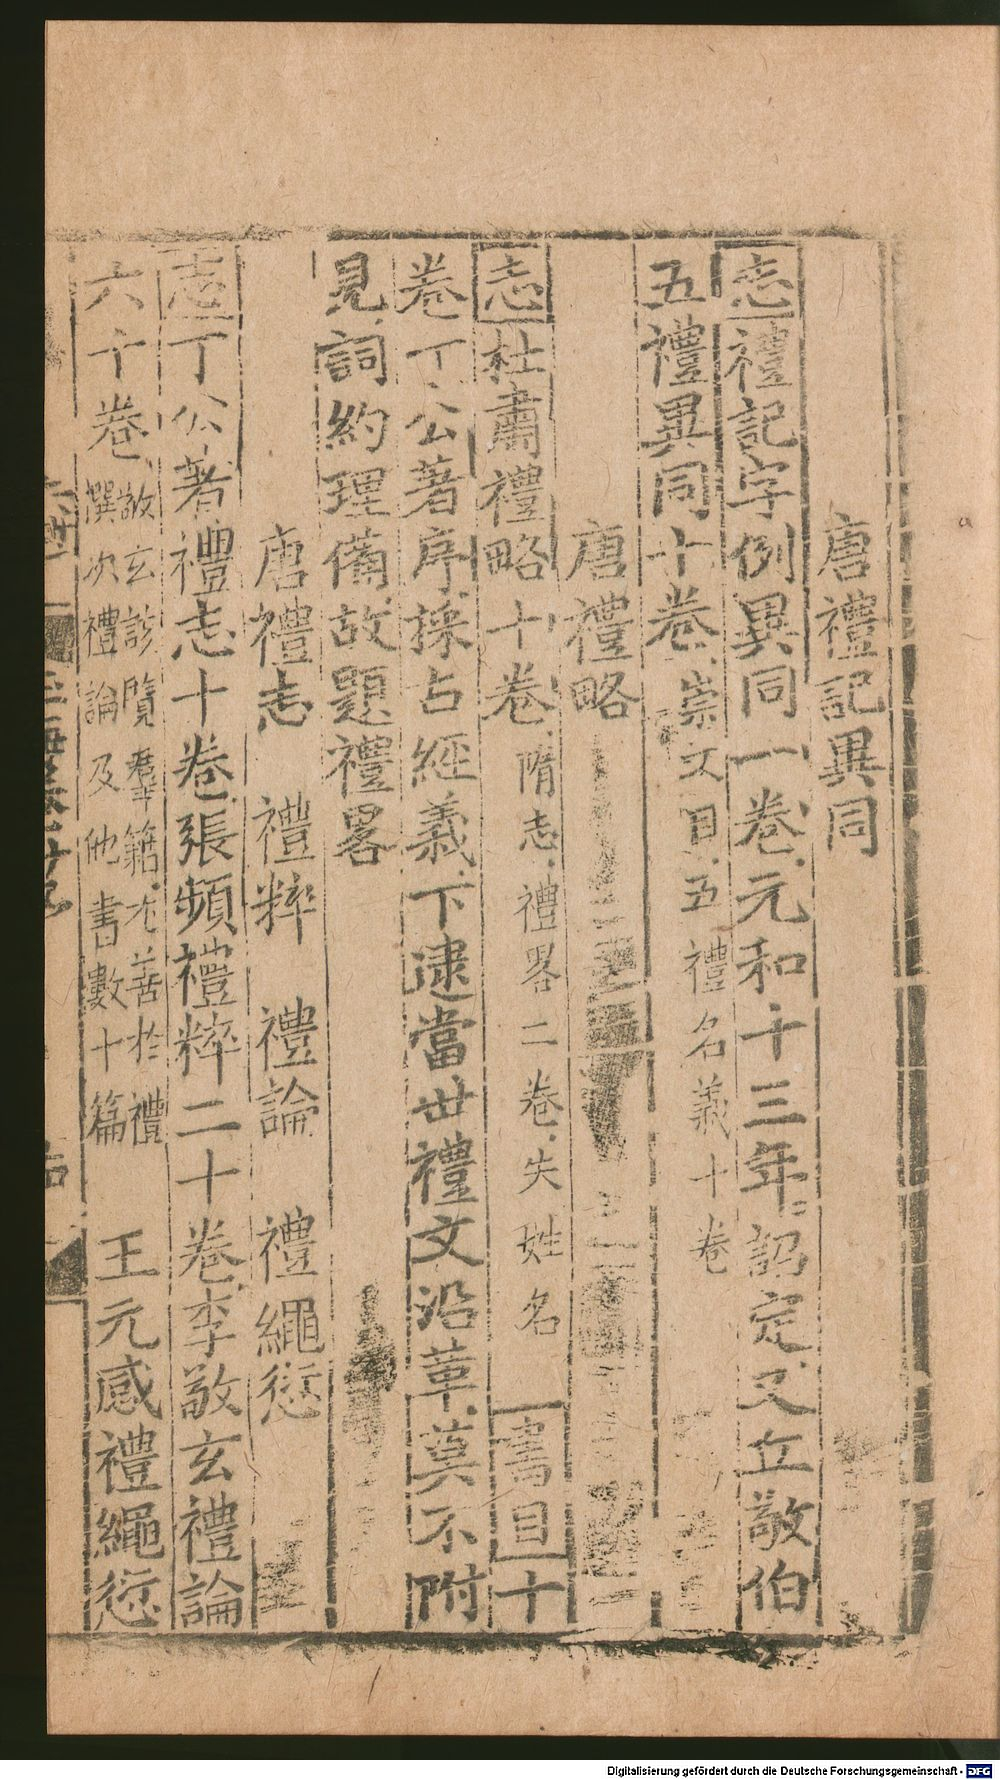 唐禮記異同
志禮記字例異同一卷元和十三年詔定又丘敬伯
五禮異同十卷崇文目五禮名義十卷
唐禮略
志杜肅禮略十卷隋志禮畧二卷失姓名書目十
卷丁公著序採古經義下逮當世禮文沿革莫不附
見詞約理備故題禮畧
唐禮志 禮粹 禮論 禮繩愆
志丁公著禮志十卷張頻禮粹二十卷李敬玄禮論
六十卷敬玄診覽羣籍尤善於禮
撰次禮論及他書數十篇
王元感禮繩愆
Digitalisierung gefördert durch die Deutsche Forschungsgemeinschaft - DFG